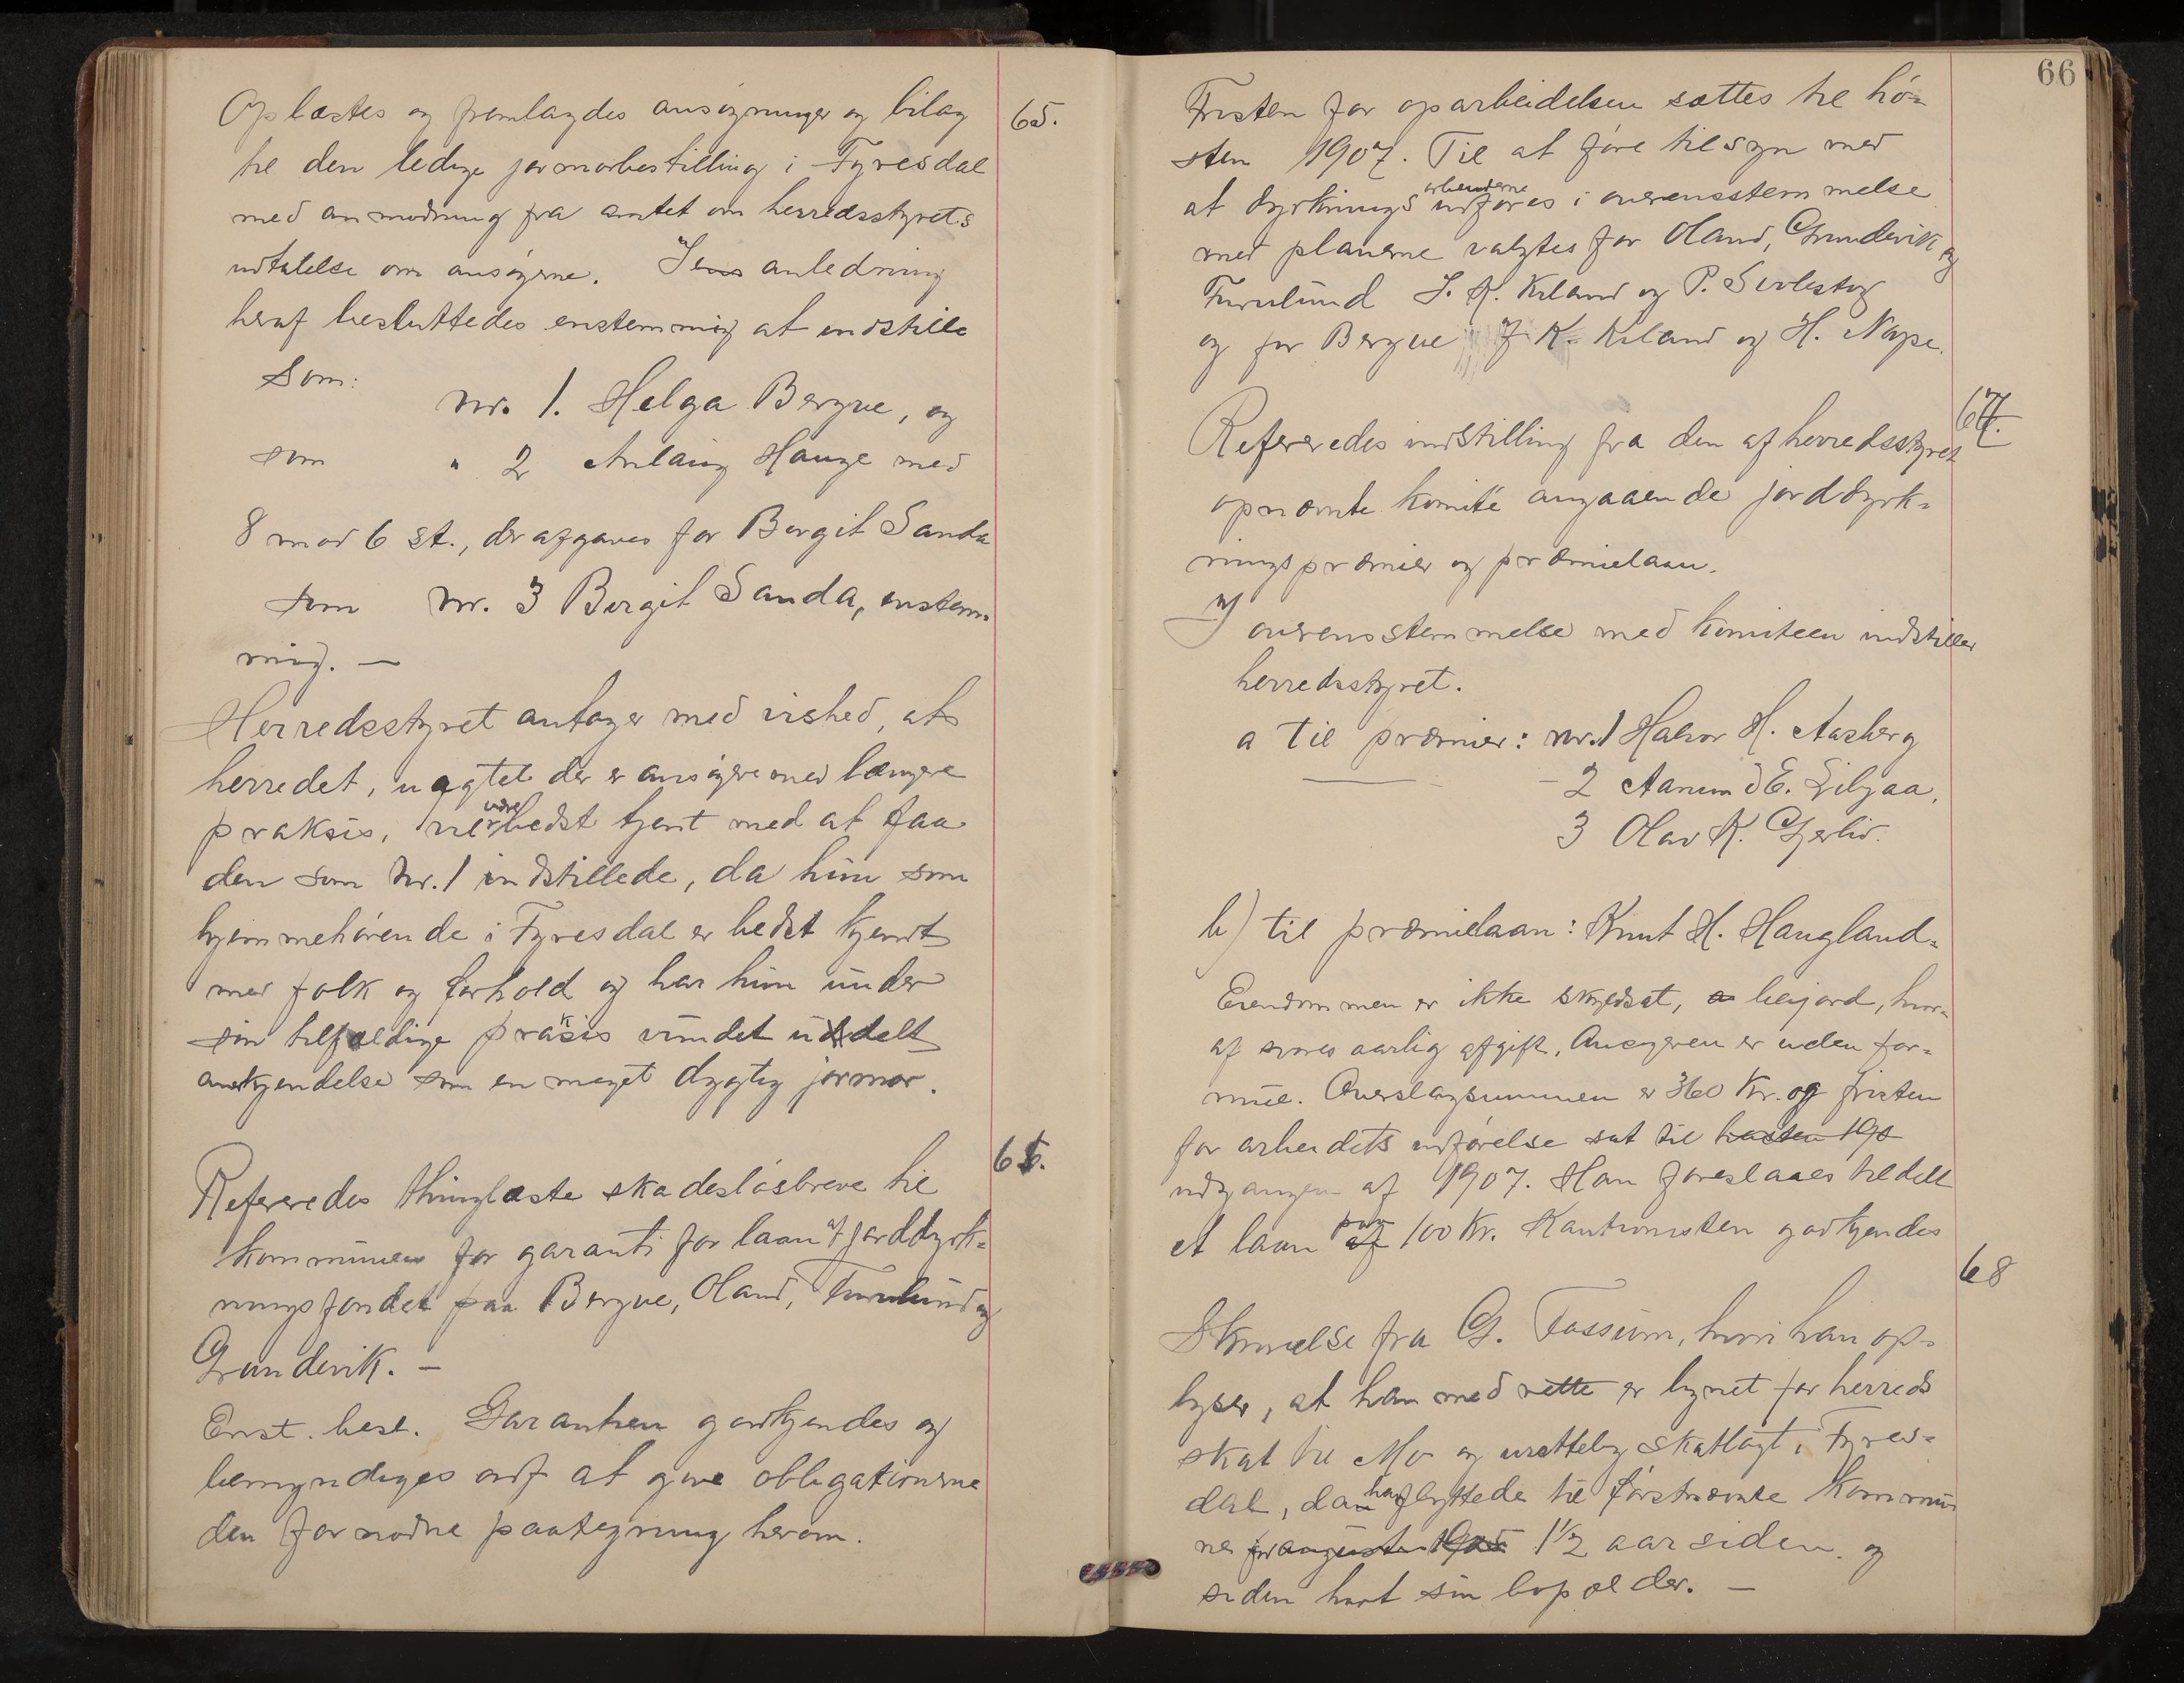 65.
Oplæstes og fremlagdes ansøgninger og bilag
til den ledige jormorbestilling i Fyresdal
med anmodning fra amtet om herredsstyrets
udtalelse om ansøgerne. I anledning
heraf besluttedes enstemmig at indstille
som: nr. 1. Helga Bergue, og
som " 2 Anlaug Hauge med
8 mod 6 st., der afgaves for Borgit Sanda
som nr. 3 Borgit Sanda, enstem-
mig. —
Herredsstyret antager med vished, at
herredet, uagtet der er ansøgere med længere
praksis, er bedst tjent med at faa
den som nr. 1 indstillede, da hun som
hjemmehørende i Fyresdal er bedst kjendt
med folk og forhold og har hun under
sin tilfældige praksis vundet udelt
anerkjendelse som en meget dygtig jormor.
66.
Refereredes thinglæste skadesløsbreve til
kommunen for garanti for laan af jorddyrk-
ningsfondet paa Bergue, Oland, Furulund og
Grundevik. —
Enst. besl. Garantien godkjendes og
bemyndiges ordf at give obligationerne
den fornødne paategning herom.
66
Fristen for oparbeidelsen sættes til hø-
sten 1907. Til at føre tilsyn med
at dyrknings arbeiderne udføres i overensstemmelse
med planerne valgtes for Oland, Grundevik og
Furulund J. K. Kiland og P.
og for Bergue J K. Kiland og H. Nape.
67.
Refereredes indstilling fra den af herredsstyret
opnævnte komité angaaende jorddyrk-
ningspræmier og præmielaan.
I overensstemmelse med komiteen indstiller
herredsstyret.
a til præmier: nr. 1 Halvor H. Aasberg
— 2 Aanund E. Liljaa,
3 Olav K. Gjerliv.
b) til præmielaan: Knut H. Haugland.
Eiendommen er ikke skyldsat, leijord, hvor-
af svares aarlig afgift. Ansøgeren er uden for-
mue. Overslagsummen er 360 Kr. og fristen
for arbeidets udførelse sat til høsten 190
udgangen af 1907. Han foreslaaes tildelt
et laan paa 100 Kr. Kautionisten godkjendes
68
Skrivelse fra G. Fossum, hvori han op-
lyser, at han med rette er lignet for herreds
skat til Mo og urettelig skatlagt i Fyres-
dal, da han flyttede til førstnævnte kommu
ne for august 1905 1½ aar siden og
siden havt sin bopæl der. —